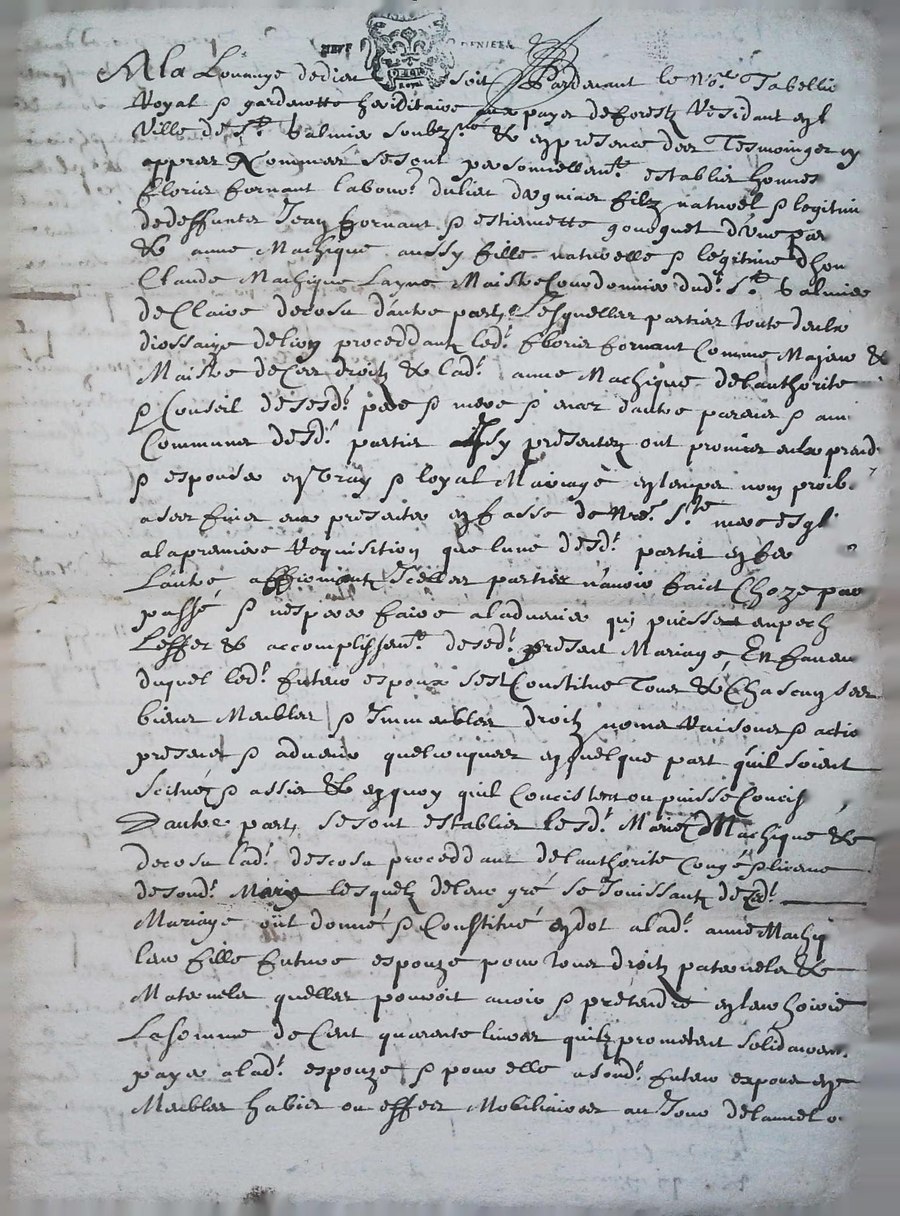 NEUF DENIERS
A la Louange de dieu soit Pardevant le No.re Tabellio
Royal & gardenotte hereditaire aux payes de forestz Residant en l
Ville de S.t Galmier soubz.né & en presence des Tesmoingtz cy
appres Nommés se sont personnellem.t establies honnes
floris fornant labour.r du lieu daguiar filz naturel & legitim
de deffunctz Jean fornant & estiennette gouguet d'une par
& anne Machique aussy fille naturelle & legitime dhon
Claude Machique Layne Maistre Courdonnier dud.t S.t Galmier
de Claire decosu d'autre part, Lesquelles parties toute deulx
diossaize de lion proceddantz led.t floris fornant Comme Majeur &
Maistre de Ces droitz & lad.t anne Machique de l'authorité
& Conseil de sesd.t pere & mere & encor d'autre parens & ami
Communs desd.t parties Issy presentz ont promies eulx prend
& espouser en Vray & loyal Mariagé en temps nom proib.
a ses finer eux presenter en fasse de Nre.t S.te mere esgl
a la premiere Requisition que lune desd.t parties en fer
Lautre affirmantz Icelles parties n'avoir faict Choze par
passé & n'esperer faire a l'advenier qui puisse empech
Leffet & accomplissem.t desed.t present Mariage En faveur
duquel led.t futeur espoux sest Constitue Tous & Chascung ses
biens Meubles & Immeubles droitz noms Raisons & actio
presens & advenir quelconques en quelque part quil soient
Scitués & assies & en quoy quil Concistent ou puisse Concis
D'autre part, se sont establies lesd.t Mariéz Machiqué &
decosu lad.t descosu proceddant de l'authorite Congé & licence
de sond.t Mary lesquelz de leur gré se Jouissantz de Ced.t
Mariage ont donné & Constitué en dot a lad.t anne Machiq
leur fille future espouze pour tous droitz paternels &
Maternels quelles pouvoit avoir & pretendre en leur hoirie
La somme de Cent quarente livres quilz prometent solidairem.
payer a lad.t espouze & pour elle a sond.t futeur espoux en
Meubles habies ou effects Mobiliaires au Jour de la